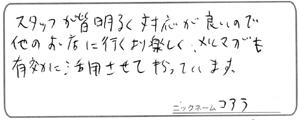 スタッフが皆明るく対応が良いので
他のお店に行くより楽しく、メルマガも
有効に活用させてもらっています。
ニックネーム コアラ